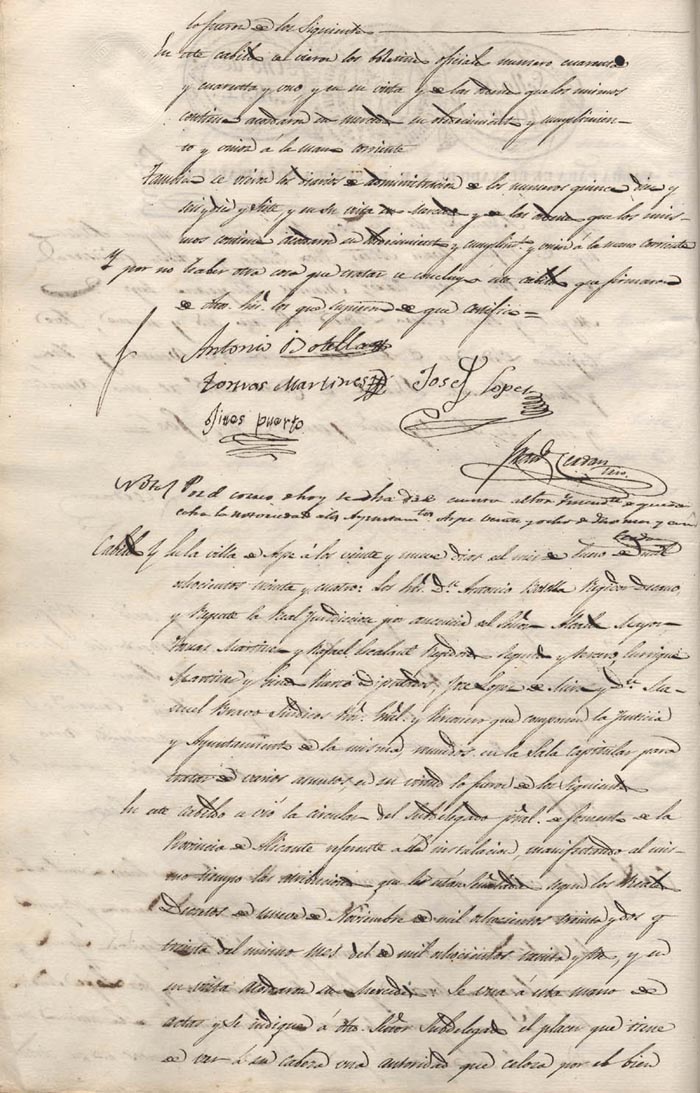 lo fueron de los Siguiente
En este cabildo se vieron los boletines oficiales numero cuarenta
y cuarenta y uno, y en su vista y de las demas que los mismos
contiene acordaron su obedecimiento y cumplimien-
to y unir á la mano corriente
Tambien se vieron los diarios de administracion de los numeros quince diez y
seis y diez y siete, y en su vista y de las demas que los mis-
mos contiene acordaron su obedecimiento y cumplimto. y unir á la mano corriente
Y por no haber otra cosa que tratar se concluyo este cabildo que firmaron
de dhos. Sres. los que supieron de que certifico =
Antonio Botella
Tomas Martines
Josef Lopez
Gines Puerto
Cerdan
Srio.
Nota/ Por el correo de hoy se ha dado cuenta
Aspe veinte y ocho de
Cerdan
Cabildo/ En la villa de Aspe á los veinte y nueve dias del mes de Enero de mil
ochocientos treinta y cuatro: Los Sres. Dn. Antonio Botella Regidor Decano,
y Regente la Real Jurisdiccion por ausencia del Señor Alcalde Mayor
Tomas Martinez y Rafael Escalant Regidores segundo y tercero, Enrique
Martinez y Gines Puerto Diputados, Jose Lopez de Mira y Dn. Ma-
nuel Bravo Sindicos Pror. Gral. y Personero que componen la Justicia
y Ayuntamiento de la misma, reunidos en la Sala Capitular para
tratar de varios asuntos, y en su virtud lo fueron de los Siguiente
En este cabildo se vió la circular del Subdelegado pral. de fomento de la
Provincia de Alicante referente a su instalacion, manifestando al mis-
mo tiempo las atribuciones que le estan señaladas segun los Reales
Decretos de nueve de Noviembre de mil ochocientos treinta y dos y
treinta del mismo mes del de mil ochocientos treinta y tres, y en
su vista acordaron sus mercedes: Se una á esta mano de
actas y se indique á dho. Señor Subdelegado el placer que tiene
de ver á su cabeza una autoridad que celosa por el bien